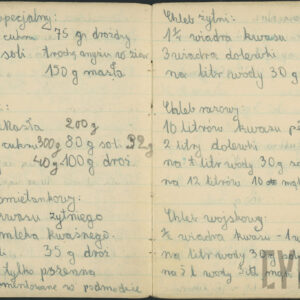 specjalny:
cukru 75 g drożdży
soli trochę anyżu w ziar
150 g masła
Masła 200 g
cukru 300 g 80 g sol. 32 g
40 g 100 g droż
śmietankowy:
kwasu żytniego
mleka kwaśnego.
35 g droż
tylko pszenna
w podmłodzie
Chleb żytni:
1 1/2 wiadra kwasu
3 wiadra dolewki
na litr wody 30 g
Chleb razowy:
10 litrów kwasu
2 litry dolewki
na 1 litr wody 30 g
na 12 litrów 10
Chleb wojskowy:
1/2 wiadra kwasu - 1
na litr wody 30 g
na 5 l wody